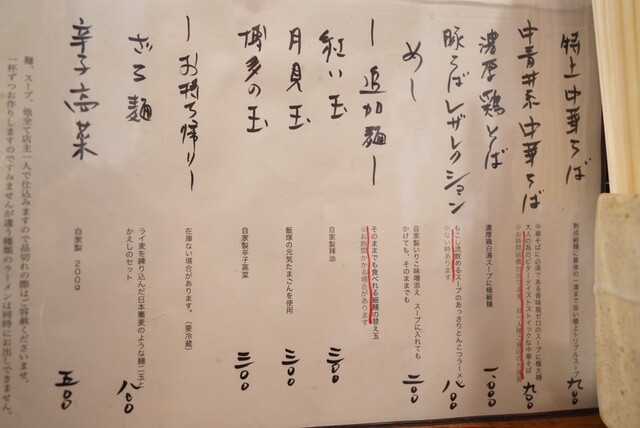 特上中華そば
熟成細麺に最後の一滴まで旨い極上トリプルスープ
九〇〇
中青井系中華そば
中華そばに必須である香味脂ゼロのスープに極太麺
大人の為のビターテイストストイックな中華そば
九〇〇
濃厚鶏そば
濃厚鶏白湯スープに極細麺
一〇〇〇
豚そばレザレクション
もこし流飲めるスープのあっさりとんこつラーメン
※ない時あります
八〇〇
めし
自家製いりこ味噌添え スープに入れても
かけても、そのままでも
二〇〇
ー追加麺ー
そのままでも食べれる細麺の替え玉
※お時間かかる場合があります
紅い玉
自家製辣油
三〇〇
月見玉
飯塚の元気たまごんを使用
三〇〇
博多の玉
自家製辛子高菜
三〇〇
ーお持ち帰りー
在庫ない場合があります。(要冷蔵)
ざる麺
ライ麦を練り込んだ日本蕎麦のような麺二玉と
かえしのセット
八〇〇
辛子高菜
自家製 200g
五〇〇
麺、スープ、他全て店主一人で仕込みますので品切れの際はご容赦くださいませ。
一杯ずつお作りしますのですみませんが違う種類のラーメンは同時にお出しできません。